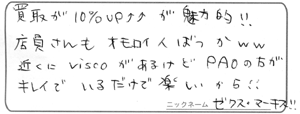 買取が10%UP↑↑が魅力的!!
店員さんもオモロイ人ばっかww
近くにviscoがあるけどPAOの方が
キレイでいるだけで楽しいから!!
ニックネーム ゼクス・マーキス!!